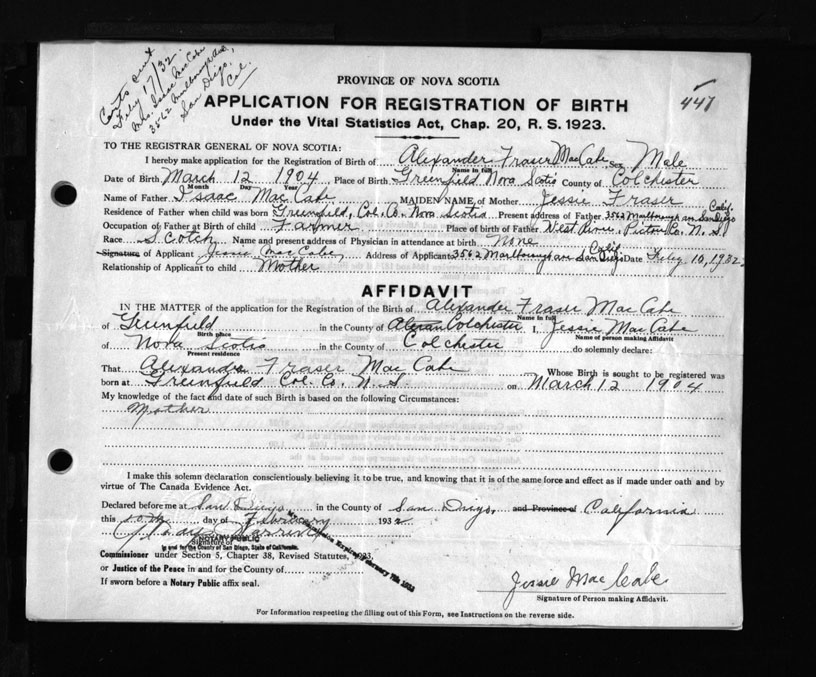 Certs sent
Feby 17/32.
Mrs. Isaac MacCabe
3562 Marlborough Ave,
San Diego,
Cal.
PROVINCE OF NOVA SCOTIA
447
APPLICATION FOR REGISTRATION OF BIRTH
Under the Vital Statistics Act, Chap. 20, R. S. 1923.
TO THE REGISTRAR GENERAL OF NOVA SCOTIA:
I hereby make application for the Registration of Birth of Alexander Fraser MacCabe Sex Male
Name in full
Date of Birth March 12 1904 Place of Birth Greenfield Nova Scotia County of Colchester
Month Day Year
Name of Father Isaac MacCabe MAIDEN NAME of Mother Jessie Fraser
Residence of Father when child was born Greenfield, Col. Co. Nova Scotia Present address of Father 3562 Marlborough ave San Diego Calif.
Occupation of Father at Birth of child Farmer Place of birth of Father West River Pictou Co. N. S.
Race Scotch Name and present address of Physician in attendance at birth None
Signature of Applicant Jessie MacCabe, Address of Applicant 3562 Marlborough ave San Diego Calif Date Feby 10, 1932.
Relationship of Applicant to child Mother
AFFIDAVIT
IN THE MATTER of the application for the Registration of the Birth of Alexander Fraser MacCabe
Name in full
of Greenfield in the County of Colchester I, Jessie MacCabe
Birth place Name of person making Affidavit
of Nova Scotia in the County of Colchester do solemnly declare:
Present residence
That Alexander Fraser MacCabe Whose Birth is sought to be registered was
born at Greenfield Col. Co. N. S. on March 12 1904
My knowledge of the fact and date of such Birth is based on the following Circumstances:
Mother
I make this solemn declaration conscientiously believing it to be true, and knowing that it is of the same force and effect as if made under oath and by
virtue of The Canada Evidence Act.
Declared before me at San Diego in the County of San Diego, and Province of California
this 10th day of February 1932
Signature of
NOTARY PUBLIC
In and for the County of San Diego, State of California.
My Commission Expires February 7th 1933
Commissioner under Section 5, Chapter 38, Revised Statutes, 1923,
or Justice of the Peace in and for the County of
If sworn before a Notary Public affix seal.
Jessie MacCabe
Signature of Person making Affidavit.
For Information respecting the filling out of this Form, see Instructions on the reverse side.